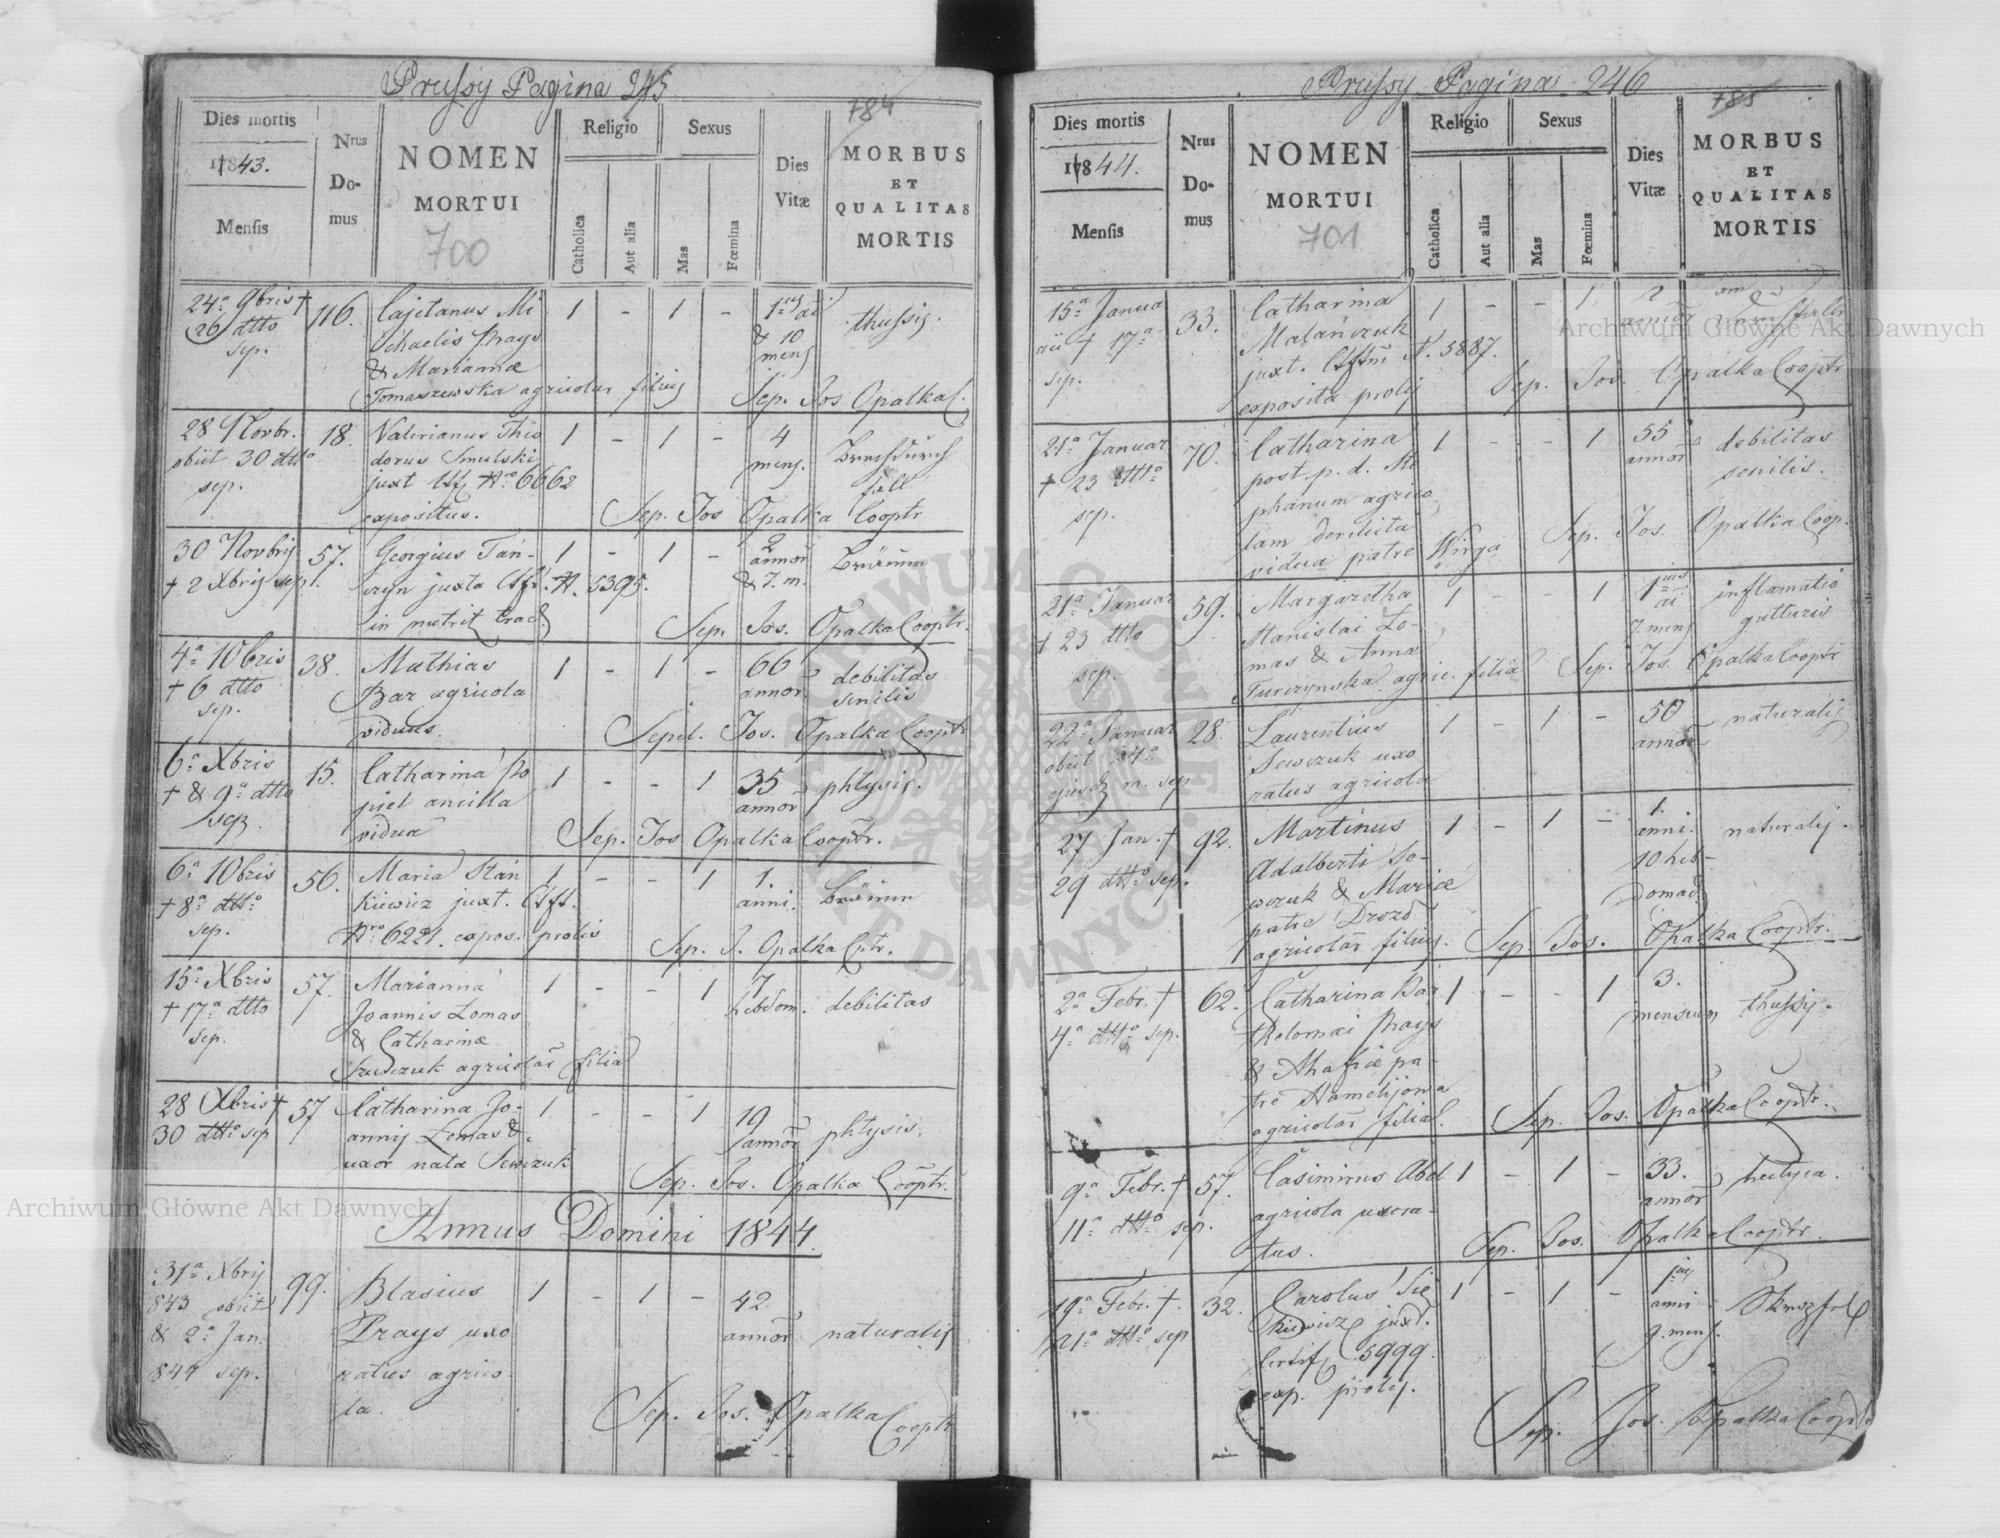 Prussy Pagina 245
784
Dies mortis
1843.
Mensis
Nrus
Do-
mus
NOMEN
MORTUI
700
Religio
Catholica
Aut alia
Sexus
Mas
Fœmina
Dies
Vitæ
MORBUS
ET
QUALITAS
MORTIS
24a 9bris †
26 dtto
sep.
116.
Cajetanus Mi
chaelis Prays
& Marianæ
Tomaszewska agricolar filius
1 - 1 -
& 10
mens
thussis.
Sep. Jos Opalka C.
28 Novbr.
obiit 30 dtto
sep.
18.
Valerianus Theo
dorus Smulski
juxt Nro 6662
expositus.
1 - 1 -
4
mens.
Sep. Jos Opalka Cooptr
30 Novbris
† 2 Xbris sept.
57.
Georgius Tań-
czyn juxta N. 5395.
in nutrit trad.
1 - 1 -
2
annor
& 7. m.
Sep. Jos. Opalka Cooptr.
4a 10bris
† 6 dtto
sep.
38.
Mathias
Bar agricola
viduus.
1 - 1 -
66
annor
debilitas
senilis
Sepel. Jos. Opalka Cooptr
6a Xbris
† & 9a dtto
sep.
15.
Catharina Po
piel ancilla
vidua
1 - - 1
35
annor
phtysis.
Sep. Jos Opalka Cooptr.
6a 10bris
† 8a dtto
sep.
56.
Maria Stan
kiewicz juxt.
Nro 6221. expos. prolis
1 - - 1
1.
anni.
Sep. J. Opalka Cptr.
15a Xbris
† 17a dtto
sep.
57.
Marianna
Joannis Lomas
& Catharinæ
Szewczuk agricolar filia
1 - - 1
7
hebdom.
debilitas
28 Xbris †
30 dtto sep
57
Catharina Jo-
annis Lomas
uxor nata Sewczuk
1 - - 1
19
annor
phtysis.
Sep. Jos. Opalka Cooptr.
Annus Domini 1844.
31a Xbris
843 obiit
& 2a Jan.
844 sep.
99.
Blasius
Prays uxo
ratus agrico-
la.
1 - 1 -
42
annor
naturalis
Sep. Jos. Opalka Cooptr
Prussy Pagina 246
785
Dies mortis
1844.
Mensis
Nrus
Do-
mus
NOMEN
MORTUI
701
Religio
Catholica
Aut alia
Sexus
Mas
Fœmina
Dies
Vitæ
MORBUS
ET
QUALITAS
MORTIS
15a Janua
rii † 17a
sep.
33.
Catharina
Malańczuk
juxt. N. 5887.
exposita prolis
1 - - 1
Sep. Jos. Opalka Cooptr
21a Januar
† 23 dtto
sep.
70.
Catharina
post p. d. Ste
phanum agrico
lam derelicta
vidua patre Wirga
1 - - 1
55
annor
debilitas
senilis.
Sep. Jos. Opalka Coop.
21a Januar
† 23 dtto
sep.
59.
Margaretha
Stanislai Lo-
mas & Anna
Turczynska agric. filia
1 - - 1
7. mens
inflamatio
gutturis
Sep. Jos. Opalka Cooptr
22a Januar
obiit 24a
ejusd. m. sep
28.
Laurentius
Sewczuk uxo
ratus agricola
1 - 1 -
50
annor
naturalis
27 Jan. †
29 dtto sep.
92.
Martinus
Adalberti Se-
wczuk & Mariæ
patre Drozd
agricolar filius.
1 - 1 -
1.
anni.
10 heb-
domad
naturalis.
Sep. Jos. Opalka Cooptr.
2a Febr. †
4a dtto sep.
62.
Catharina Bar
tholomæi Prays
& Ahafiæ pa-
tre Hamelijowa
agricolar filia.
1 - - 1
3.
mensium
thussis.
Sep. Jos. Opalka Cooptr.
9a Febr. †
11a dtto sep.
57.
Casimirus Abd
agricola uxora-
tus.
1 - 1 -
33.
annor
hectyca.
Sep. Jos. Opalka Cooptr.
19a Febr. †.
21a dtto sep
32.
Carolus Sie
kiewicz juxt.
Certif. 5999.
exp. prolis.
1 - 1 -
anni
9. mens.
Sep. Jos. Opalka Cooptr
Archiwum Główne Akt Dawnych
Archiwum Główne Akt Dawnych
ARCHIWUM GŁÓWNE AKT DAWNYCH